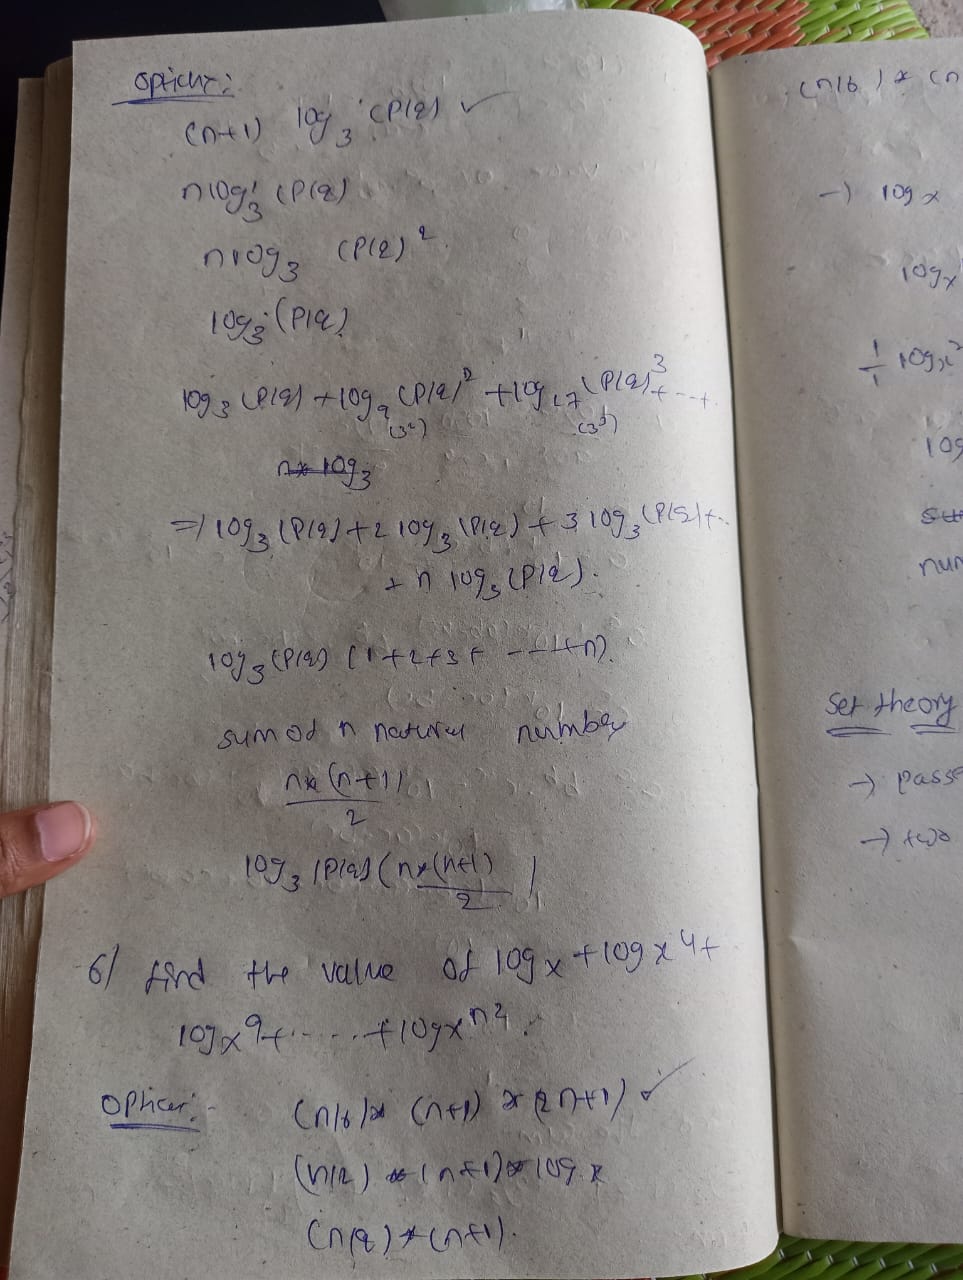 option:
(n+1) log 3 (P/q) ✓
n log 3 (P/q)
n log 3 (P/q)²
log 3 (P/q)
log3 (P/q) + log9 (P/q)² + log27 (P/q)³ + ...+
(3²) (3³)
n* log3
=) log3 (P/q) + 2 log3 (P/q) + 3 log3 (P/q) + ..
+ n log3 (P/q).
log3 (P/q) (1+2+3+ ----+n).
sum of n natural number
n*(n+1)
2
log3 (P/q) (n*(n+1)
2 )
6) find the value of log x + log x⁴ +
log x⁹ + ...... + log xⁿ².
option:-
(n/6)* (n+1) * (2n+1) ✓
(n/2) * (n+1) * log x
(n/2) * (n+1).
(n/6) * (n
-) log x
log x
1/1 log x²
log
num
Set theory
-)
-) two